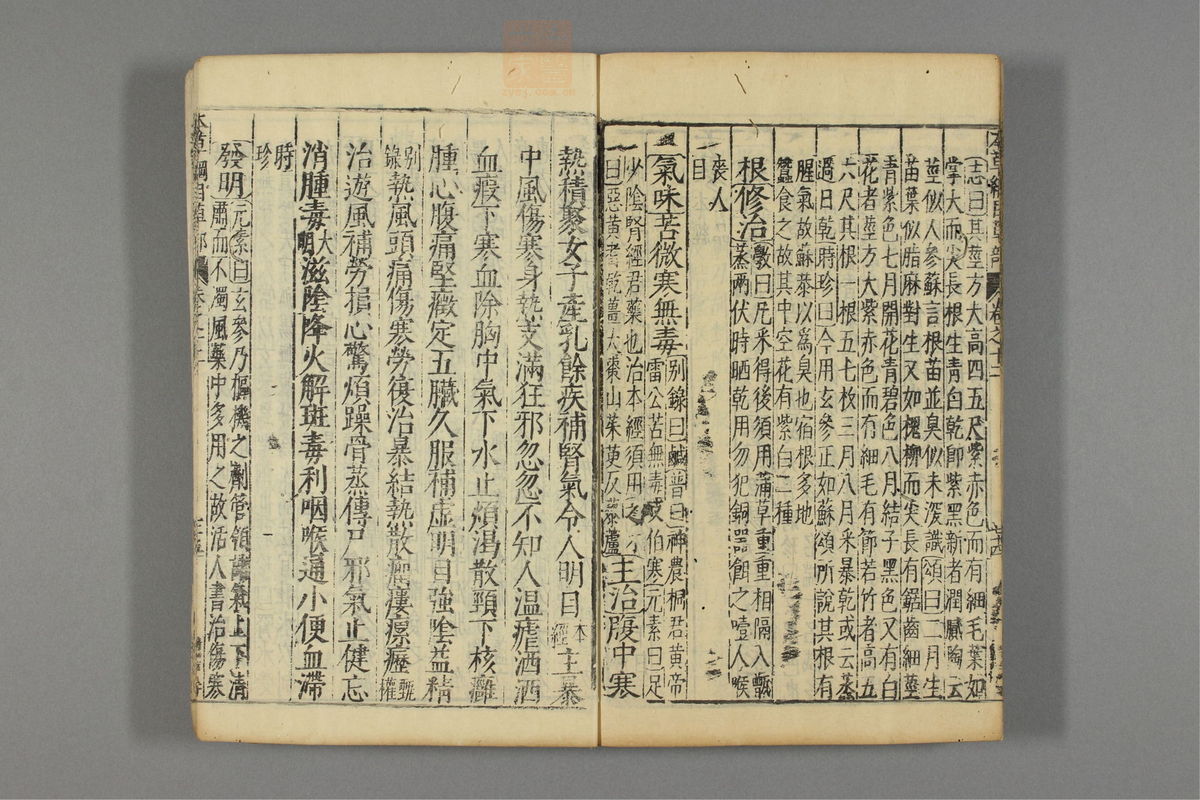 本草綱目草部 卷之十二
志曰其莖方大高四五尺紫赤色而有細毛葉如
掌大而尖長根生青白乾卽紫黑新者潤膩陶云
莖似人參蘇言根苗並臭似未深識頌曰二月生
苗葉似脂麻對生又如槐柳而尖長有鋸齒細莖
青紫色七月開花青碧色八月結子黑色又有白
花者莖方大紫赤色而有細毛有節若竹者高五
六尺其根一根五七枚三月八月采暴乾或云蒸
過日乾時珍曰今用玄參正如蘇頌所說其根有
腥氣故蘇恭以爲臭也宿根多地
蠶食之故其中空花有紫白二種
根修治斅曰凡采得後須用蒲草重重相隔入甑
蒸兩伏時晒乾用勿犯銅器餌之噎人喉
喪人
目
氣味苦微寒無毒別錄曰鹹普曰神農桐君黃帝
雷公苦無毒岐伯寒元素曰足
少陰腎經君藥也治本經須用之
曰惡黃耆乾薑大棗山茱萸反藜蘆主治腹中寒
熱積聚女子產乳餘疾補腎氣令人明目本經主暴
中風傷寒身熱支滿狂邪忽忽不知人溫瘧洒洒
血瘕下寒血除胸中氣下水止煩渴散頸下核癰
腫心腹痛堅癥定五臟久服補虛明目強陰益精
別錄熱風頭痛傷寒勞復治暴結熱散瘤瘻瘰癧甄權
治遊風補勞損心驚煩躁骨蒸傳尸邪氣止健忘
消腫毒大明滋陰降火解斑毒利咽喉通小便血滯
時珍
發明元素曰玄參乃樞機之劑管領諸氣上下清
肅而不濁風藥中多用之故活人書治傷寒
本草綱目草部 卷之十二